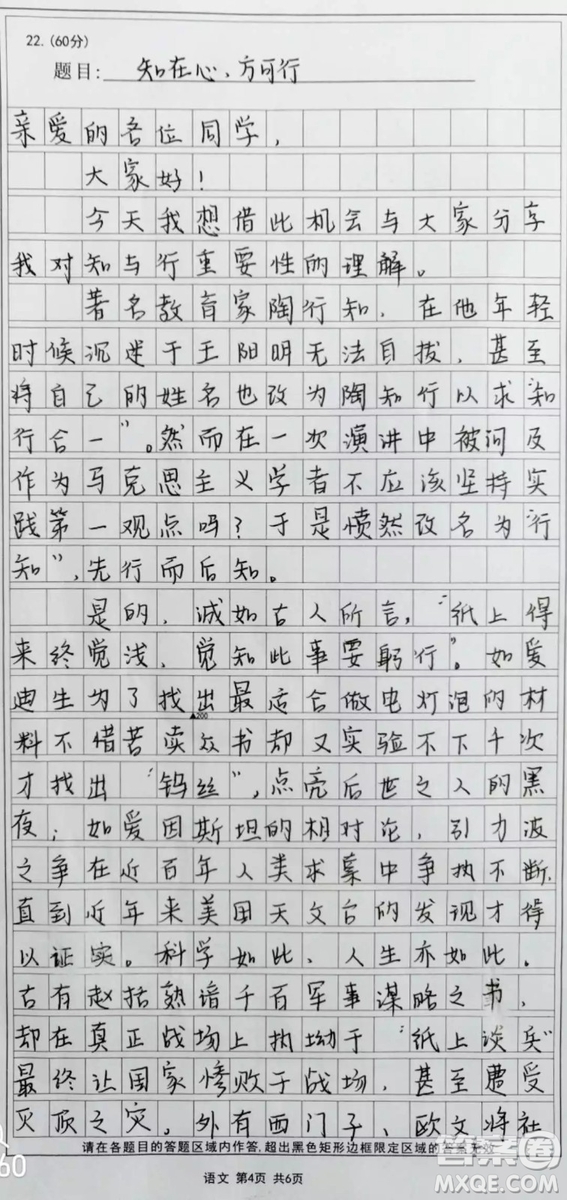 22. (60分)
题目: 知在心，方可行
亲爱的各位同学，
大家好！
今天我想借此机会与大家分享
我对知与行重要性的理解。
著名教育家陶行知，在他年轻
时候沉迷于王阳明无法自拔，甚至
将自己的姓名也改为陶知行以求“知
行合一”。然而在一次演讲中被问及
作为马克思主义学者不应该坚持实
践第一观点吗？于是愤然改名为“行
知”，先行而后知。
是的，诚如古人所言，“纸上得
来终觉浅，觉知此事要躬行”。如爱
迪生为了找出最适合做电灯泡的材
▲200
料不惜苦读众书却又实验不下千次
才找出“钨丝”，点亮后世之人的黑
夜；如爱因斯坦的相对论，引力波
之争在近百年人类求索中争执不断，
直到近年来美国天文台的发现才得
以证实。科学如此，人生亦如此。
古有赵括熟谙千百军事谋略之书，
却在真正战场上执坳于“纸上谈兵”
最终让国家惨败于战场，甚至遭受
灭顶之灾，外有西门子、欧文将社
请在各题目的答题区域内作答，超出黑色矩形边框限定区域的答案无效
60
语文 第4页 共6页